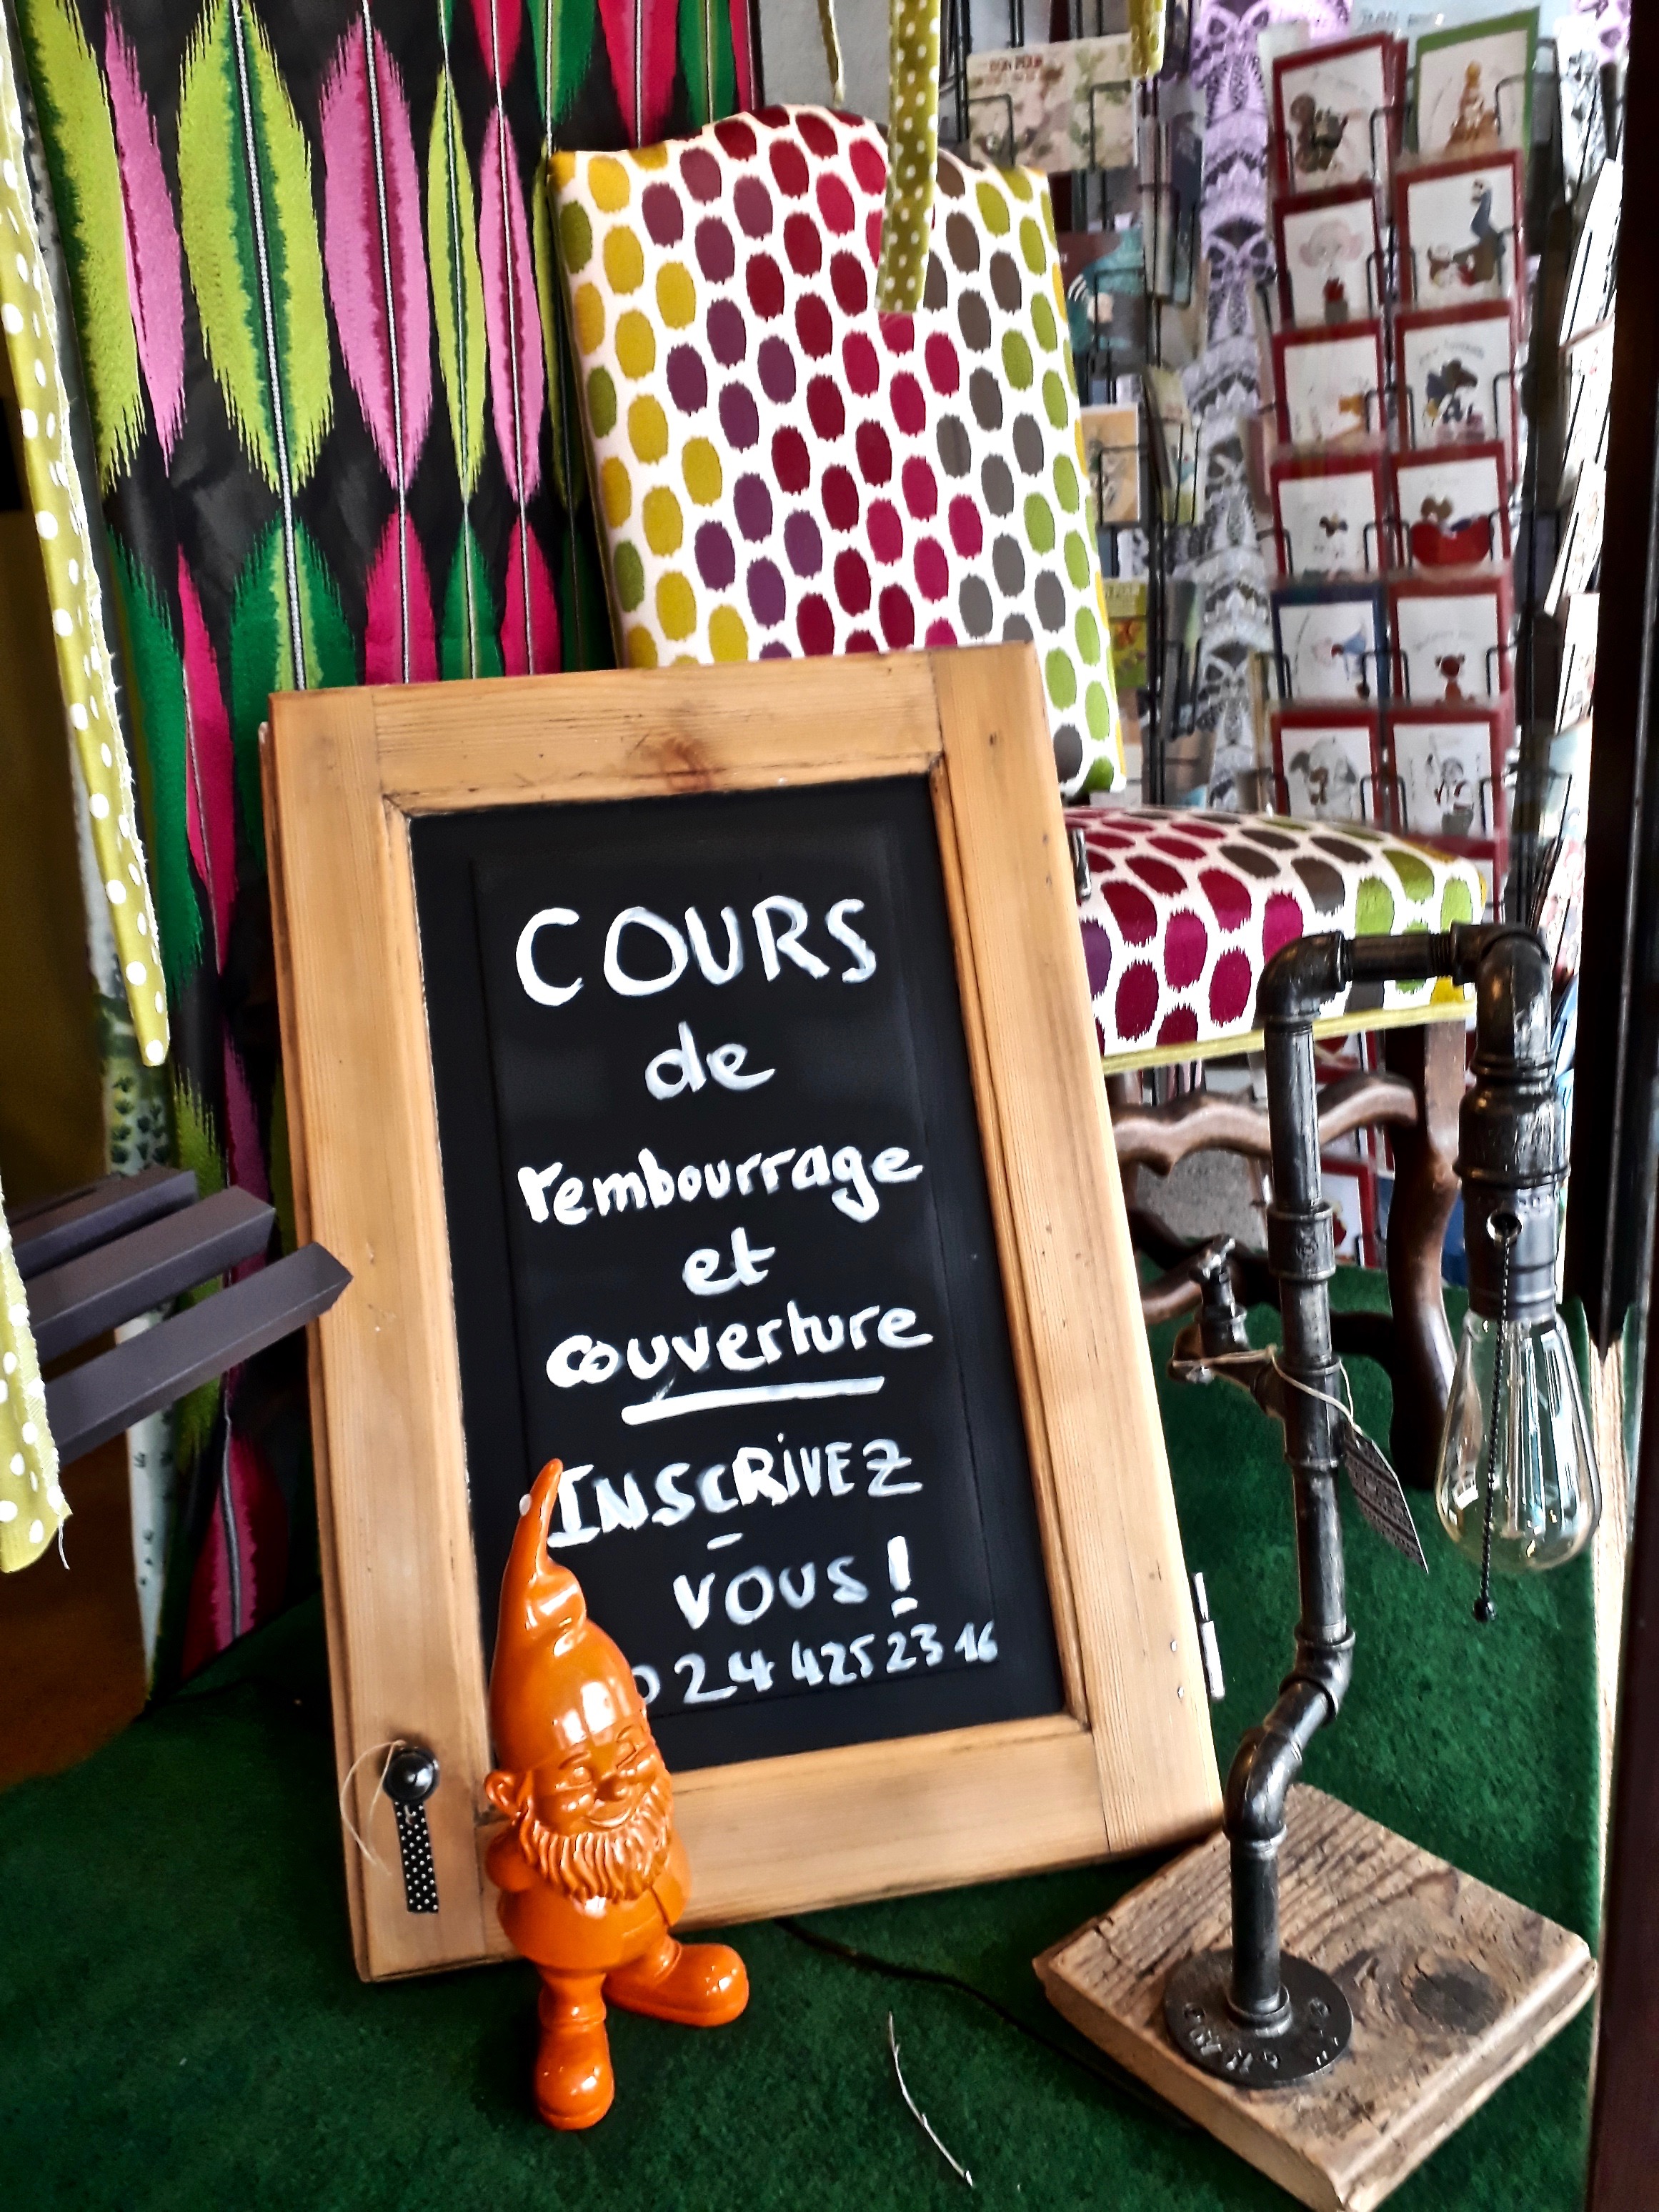 COURS
de
rembourrage
et
couverture
INSCRIVEZ
-
VOUS!
024 425 23 16